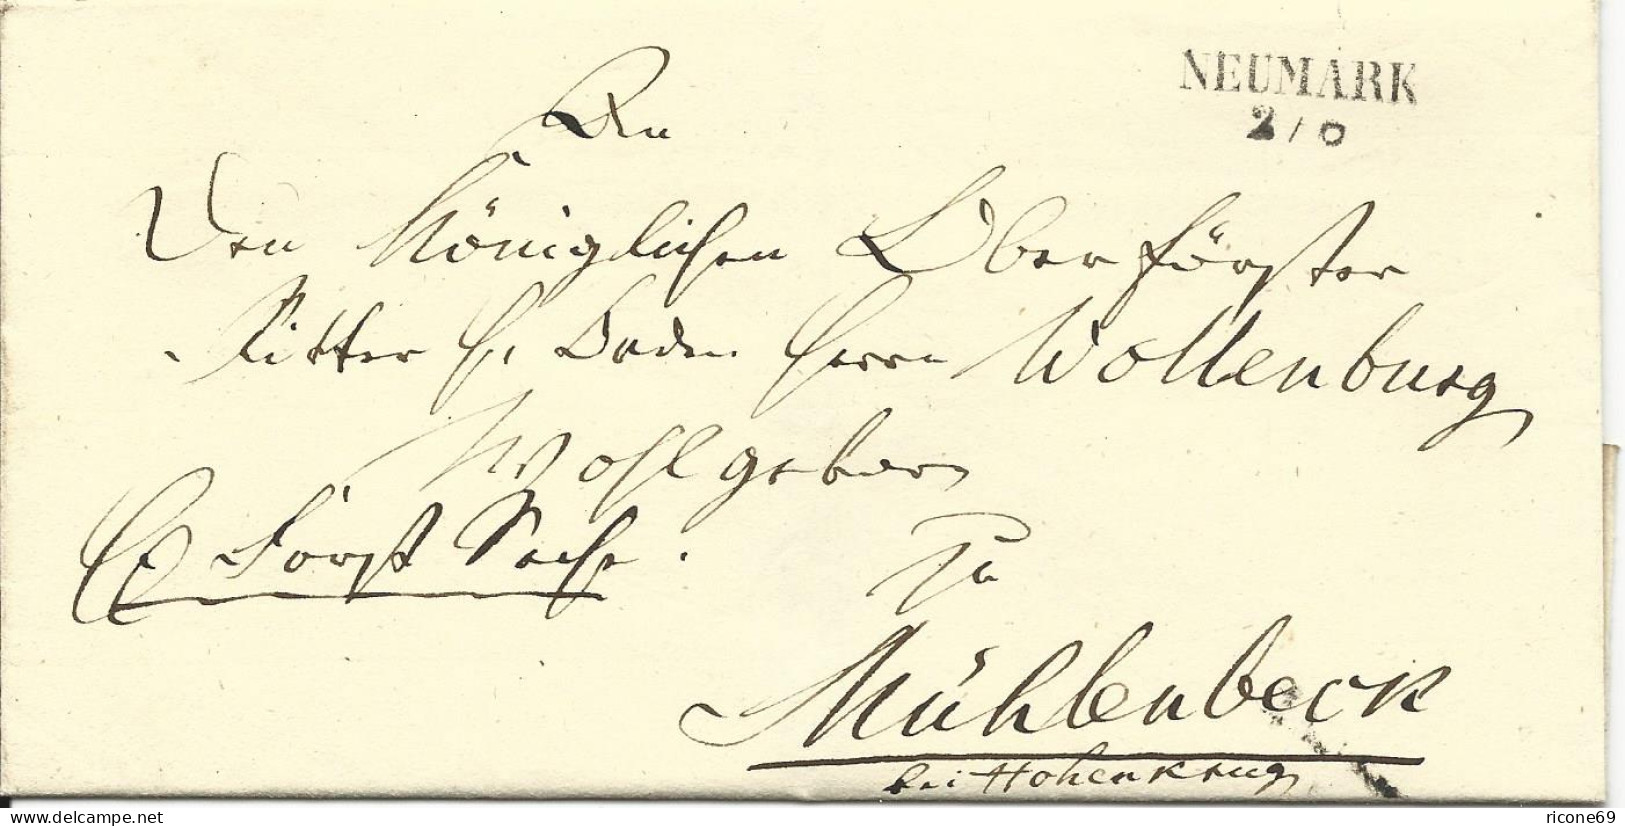 NEUMARK
2/6
An
Den Königlichen Oberförster
Ritter p. Herrn Wollenburg
Wohlgeboren
Forst Sache.
Zu
Mühlenbeck
bei Hohenkrug
delcampe.net
ricone69